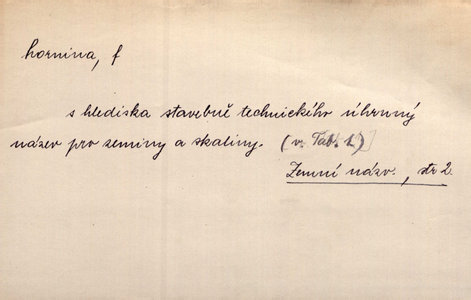 hornina, f
s hlediska stavebně technického úhrnný
název pro zeminy a skaliny. (v. Tab. 1.)
Zemní názv., str 2.